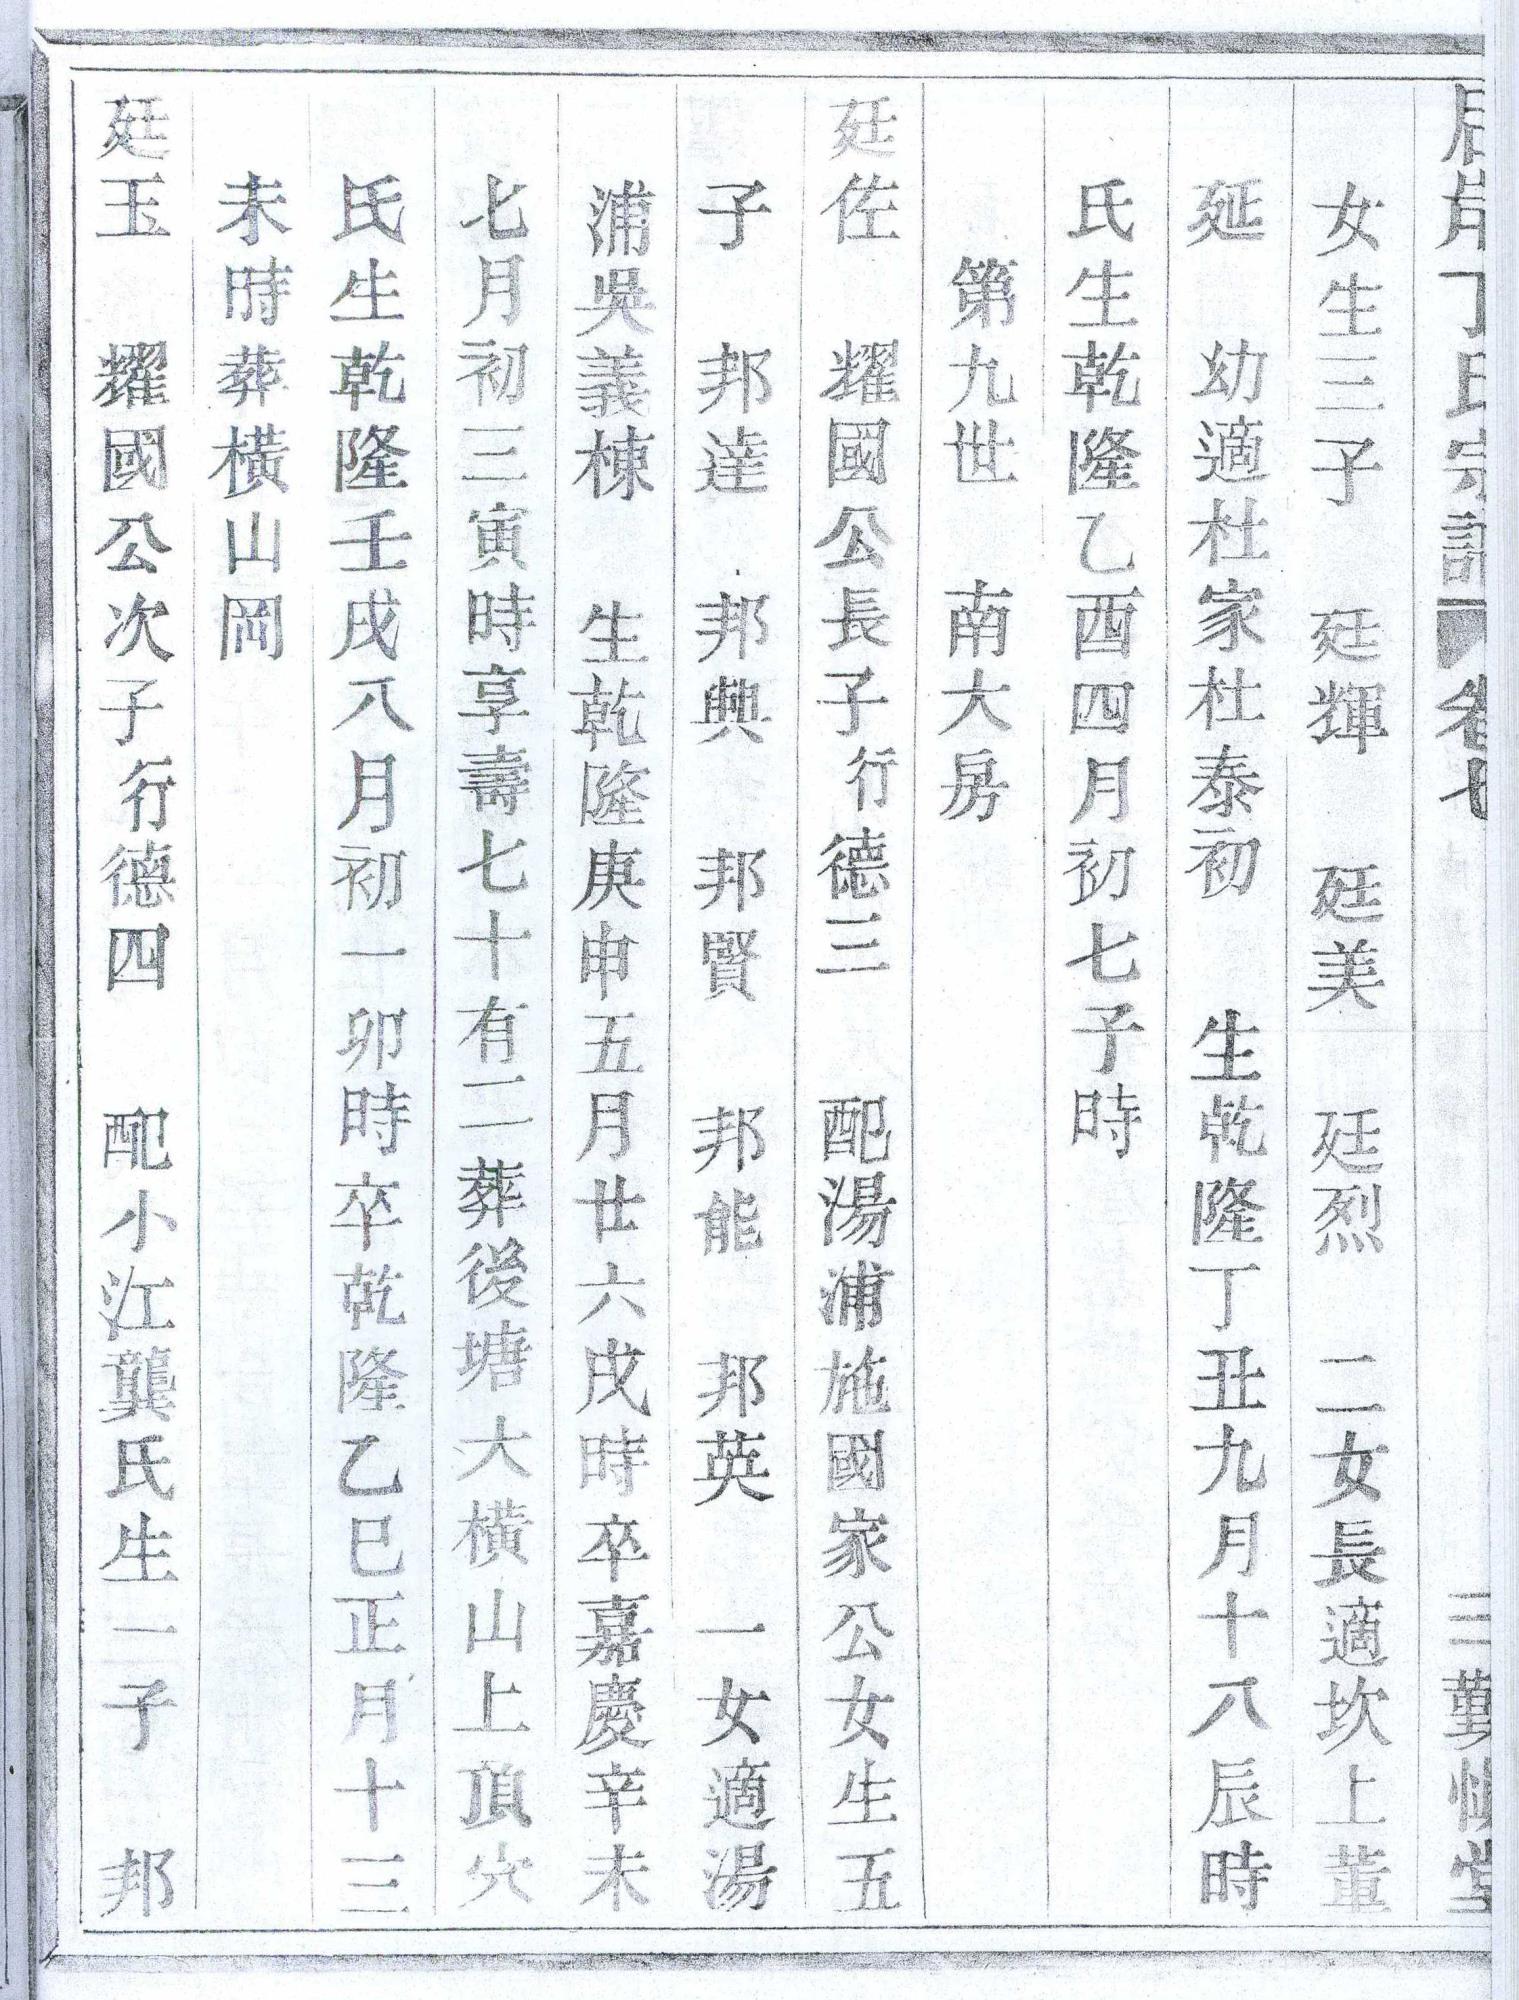 丁氏宗譜 卷七 三 勤慎堂
女生三子 廷輝 廷美 廷烈 二女長適坎上董
延 幼適杜家杜泰初 生乾隆丁丑九月十八辰時
氏生乾隆乙酉四月初七子時
第九世 南大房
廷佐 耀國公長子行德三 配湯浦施國家公女生五
子 邦達 邦興 邦賢 邦能 邦英 一女適湯
浦吳義棟 生乾隆庚申五月廿六戌時卒嘉慶辛未
七月初三寅時享壽七十有二葬後塘大橫山上頂穴
氏生乾隆壬戌八月初一卯時卒乾隆乙巳正月十三
未時葬橫山岡
廷玉 耀國公次子行德四 配小江龔氏生一子 邦